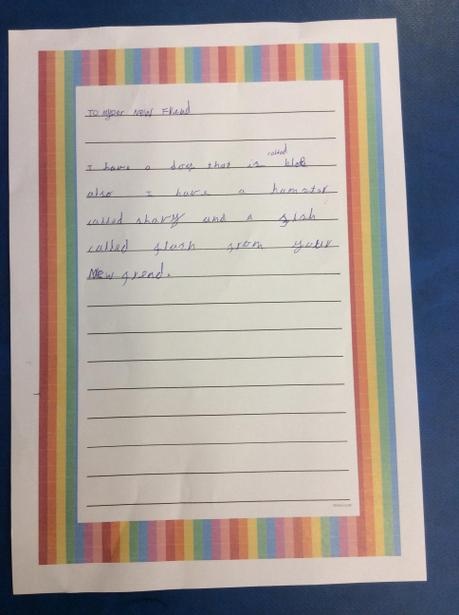 To my new Friend
called
I have a dog that is blob
also I have a hamster
called shary and a fish
called flash from your
New frend.